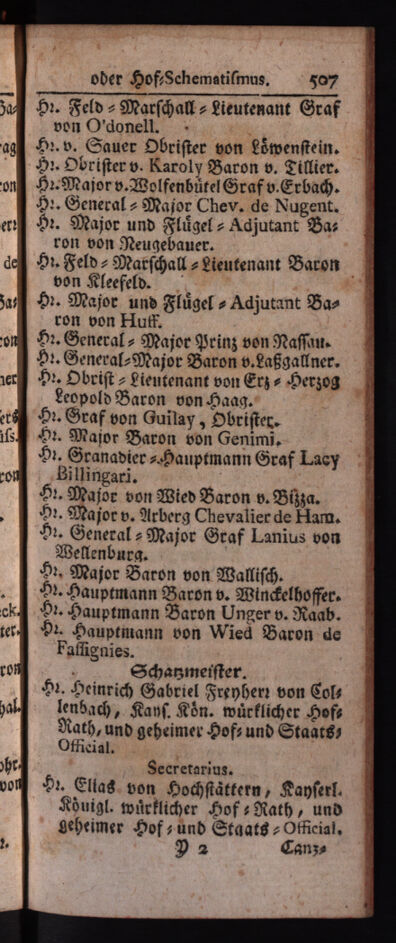 oder Hof-Schematiſmus. 507
Hr. Feld-Marschall-Lieutenant Graf
von O'donell.
Hr. v. Sauer Obrister von Löwenstein.
Hr. Obrister v. Karoly Baron v. Tillier.
Hr. Major v. Wolfenbütel Graf v. Erbach.
Hr. General-Major Chev. de Nugent.
Hr. Major und Flügel-Adjutant Ba-
ron von Neugebauer.
Hr. Feld-Marschall-Lieutenant Baron
von Kleefeld.
Hr. Major und Flügel-Adjutant Ba-
ron von Huff.
Hr. General-Major Prinz von Nassau.
Hr. General-Major Baron v. Laßgallner.
Hr. Obrist-Lieutenant von Erz-Herzog
Leopold Baron von Haag.
Hr. Graf von Guilay, Obrister.
Hr. Major Baron von Genimi.
Hr. Granadier-Hauptmann Graf Lacy
Billingari.
Hr. Major von Wied Baron v. Bizza.
Hr. Major v. Arberg Chevalier de Ham.
Hr. General-Major Graf Lanius von
Wellenburg.
Hr. Major Baron von Wallisch.
Hr. Hauptmann Baron v. Winckelhoffer.
Hr. Hauptmann Baron Unger v. Raab.
Hr. Hauptmann von Wied Baron de
Faſſignies.
Schatzmeister.
Hr. Heinrich Gabriel Freyherr von Col-
lenbach, Kays. Kön. würklicher Hof-
Rath, und geheimer Hof- und Staats-
Official.
Secretarius.
Hr. Elias von Hochstättern, Kayserl.
Königl. würklicher Hof-Rath, und
geheimer Hof- und Staats-Official.
Y 2 Canz-